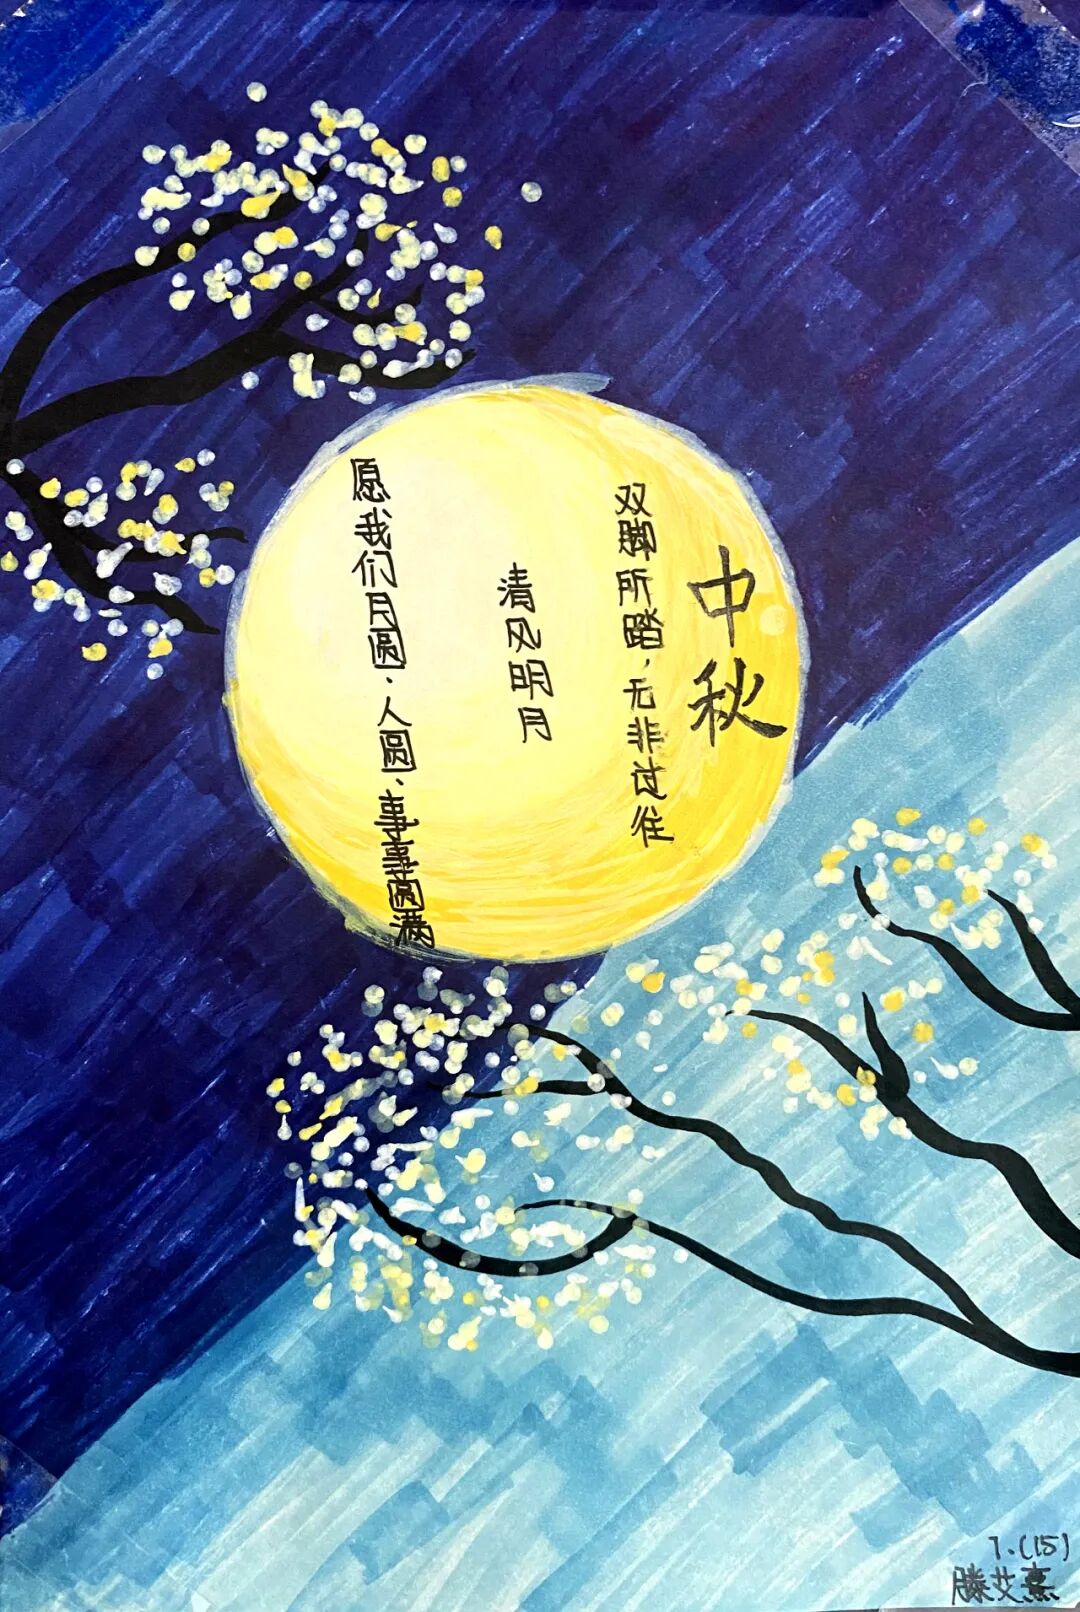 中秋
双脚所踏，无非过往
清风明月
愿我们月圆、人圆、事事圆满
7.(15)
滕艾熹